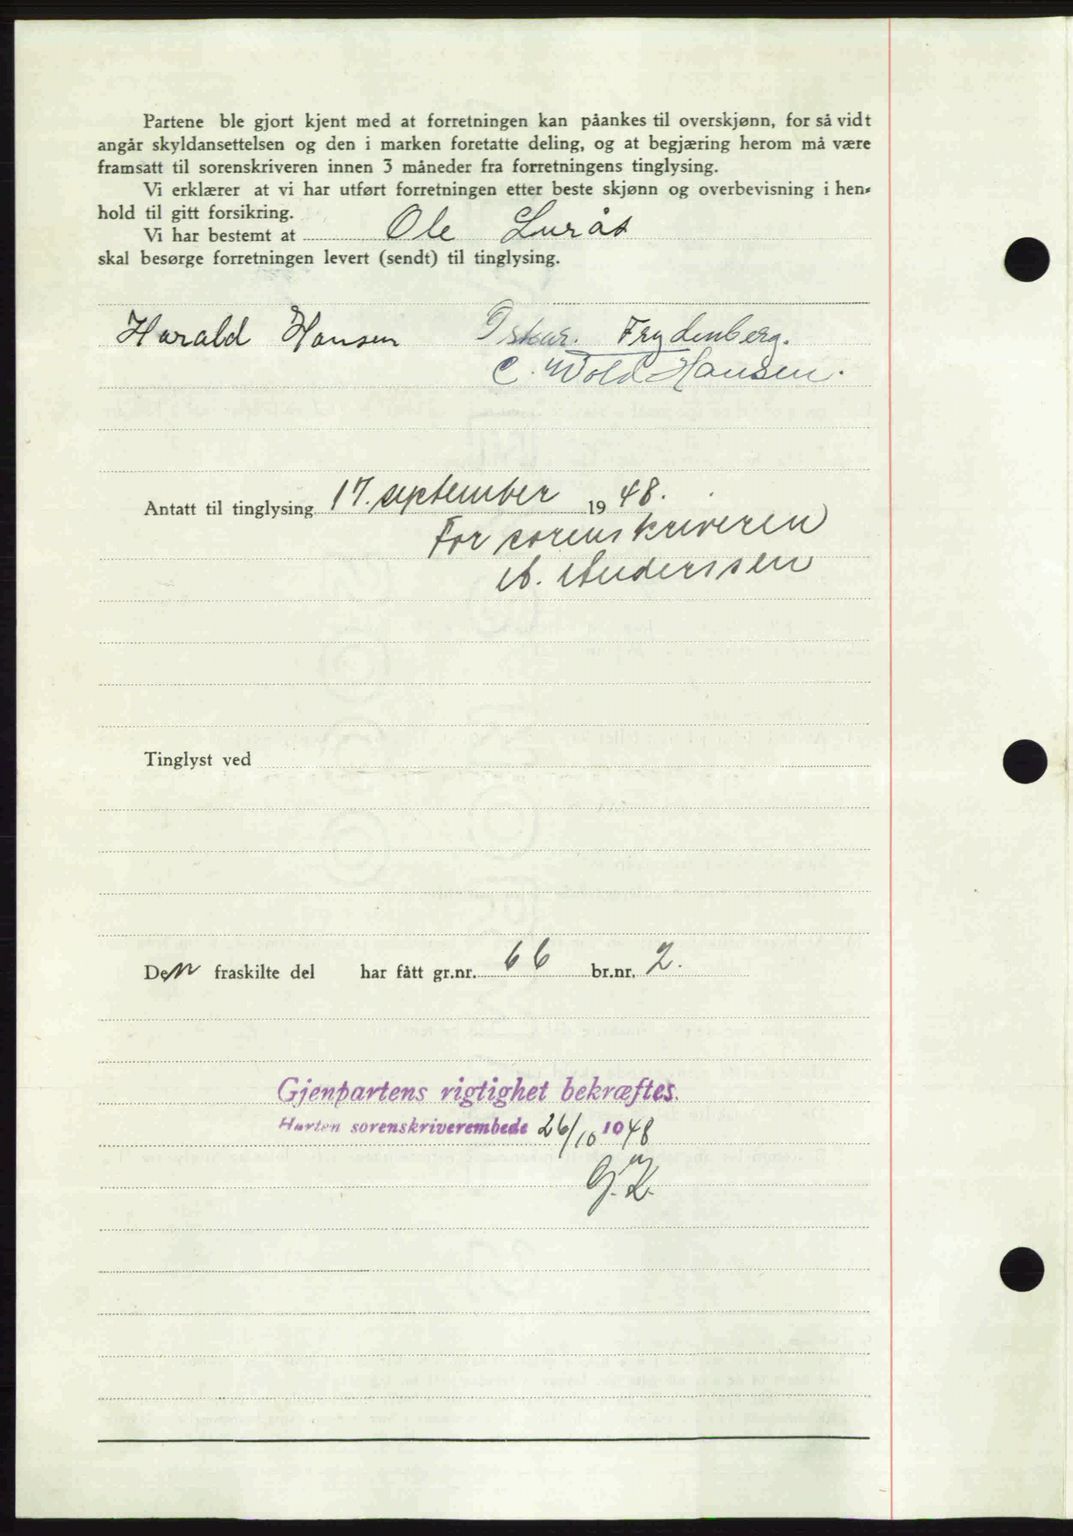 Partene ble gjort kjent med at forretningen kan påankes til overskjønn, for så vidt
angår skyldansettelsen og den i marken foretatte deling, og at begjæring herom må være
framsatt til sorenskriveren innen 3 måneder fra forretningens tinglysing.
Vi erklærer at vi har utført forretningen etter beste skjønn og overbevisning i hen-
hold til gitt forsikring.
Vi har bestemt at Ole Lurås
skal besørge forretningen levert (sendt) til tinglysing.
Harald Hansen Oskar. Frydenberg.
C. Wold Hansen.
Antatt til tinglysing 17. september 1948.
For sorenskriveren
A. Anderssen
Tinglyst ved
Den fraskilte del har fått gr.nr. 66 br.nr. 2.
Gjenpartens rigtighet bekræftes.
Horten sorenskriverembede 26/10 1948
G.K.